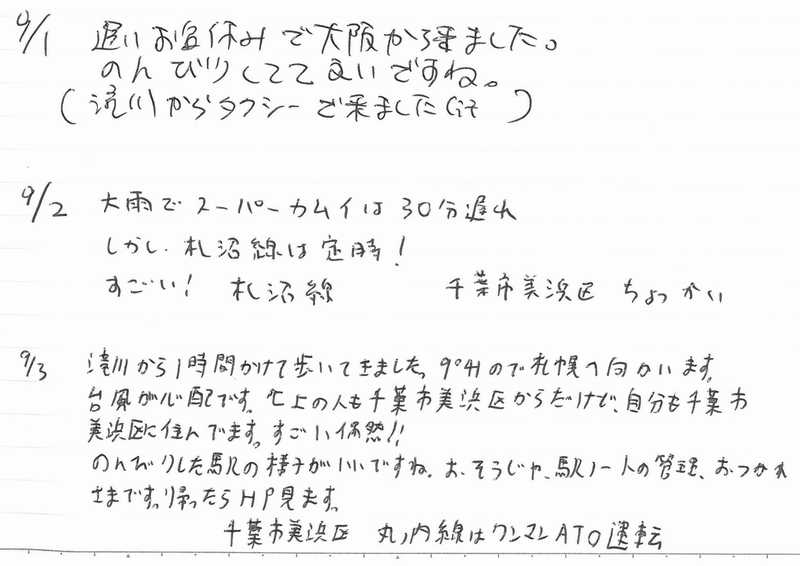 9/1 遅いお盆休みで大阪から来ました。
のんびりしてて良いですね。
(滝川からタクシーで来ましたけど)
9/2 大雨でスーパーカムイは30分遅れ
しかし、札沼線は定時!
すごい! 札沼線 千葉市美浜区 ちょっかい
9/3 滝川から1時間かけて歩いてきました。9:41ので札幌へ向かいます。
台風が心配です。℃上の人も千葉市美浜区からだけど、自分も千葉市
美浜区に住んでます。すごい偶然!!
のんびりした駅の様子がいいですね。お、そうじや、駅ノートの管理、おつかれ
さまです。帰ったらHP見ます。
千葉市美浜区 丸ノ内線はワンマンATO運転